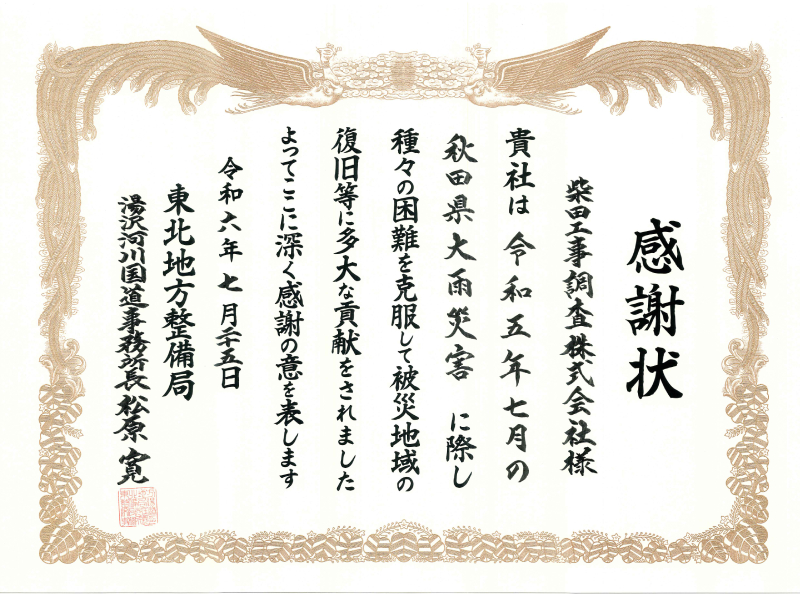 感謝状
柴田工事調査株式会社様
貴社は令和五年七月の
秋田県大雨災害に際し
種々の困難を克服して被災地域の
復旧等に多大な貢献をされました
よってここに深く感謝の意を表します
令和六年七月二十五日
東北地方整備局
湯沢河川国道事務所長 松原 寛